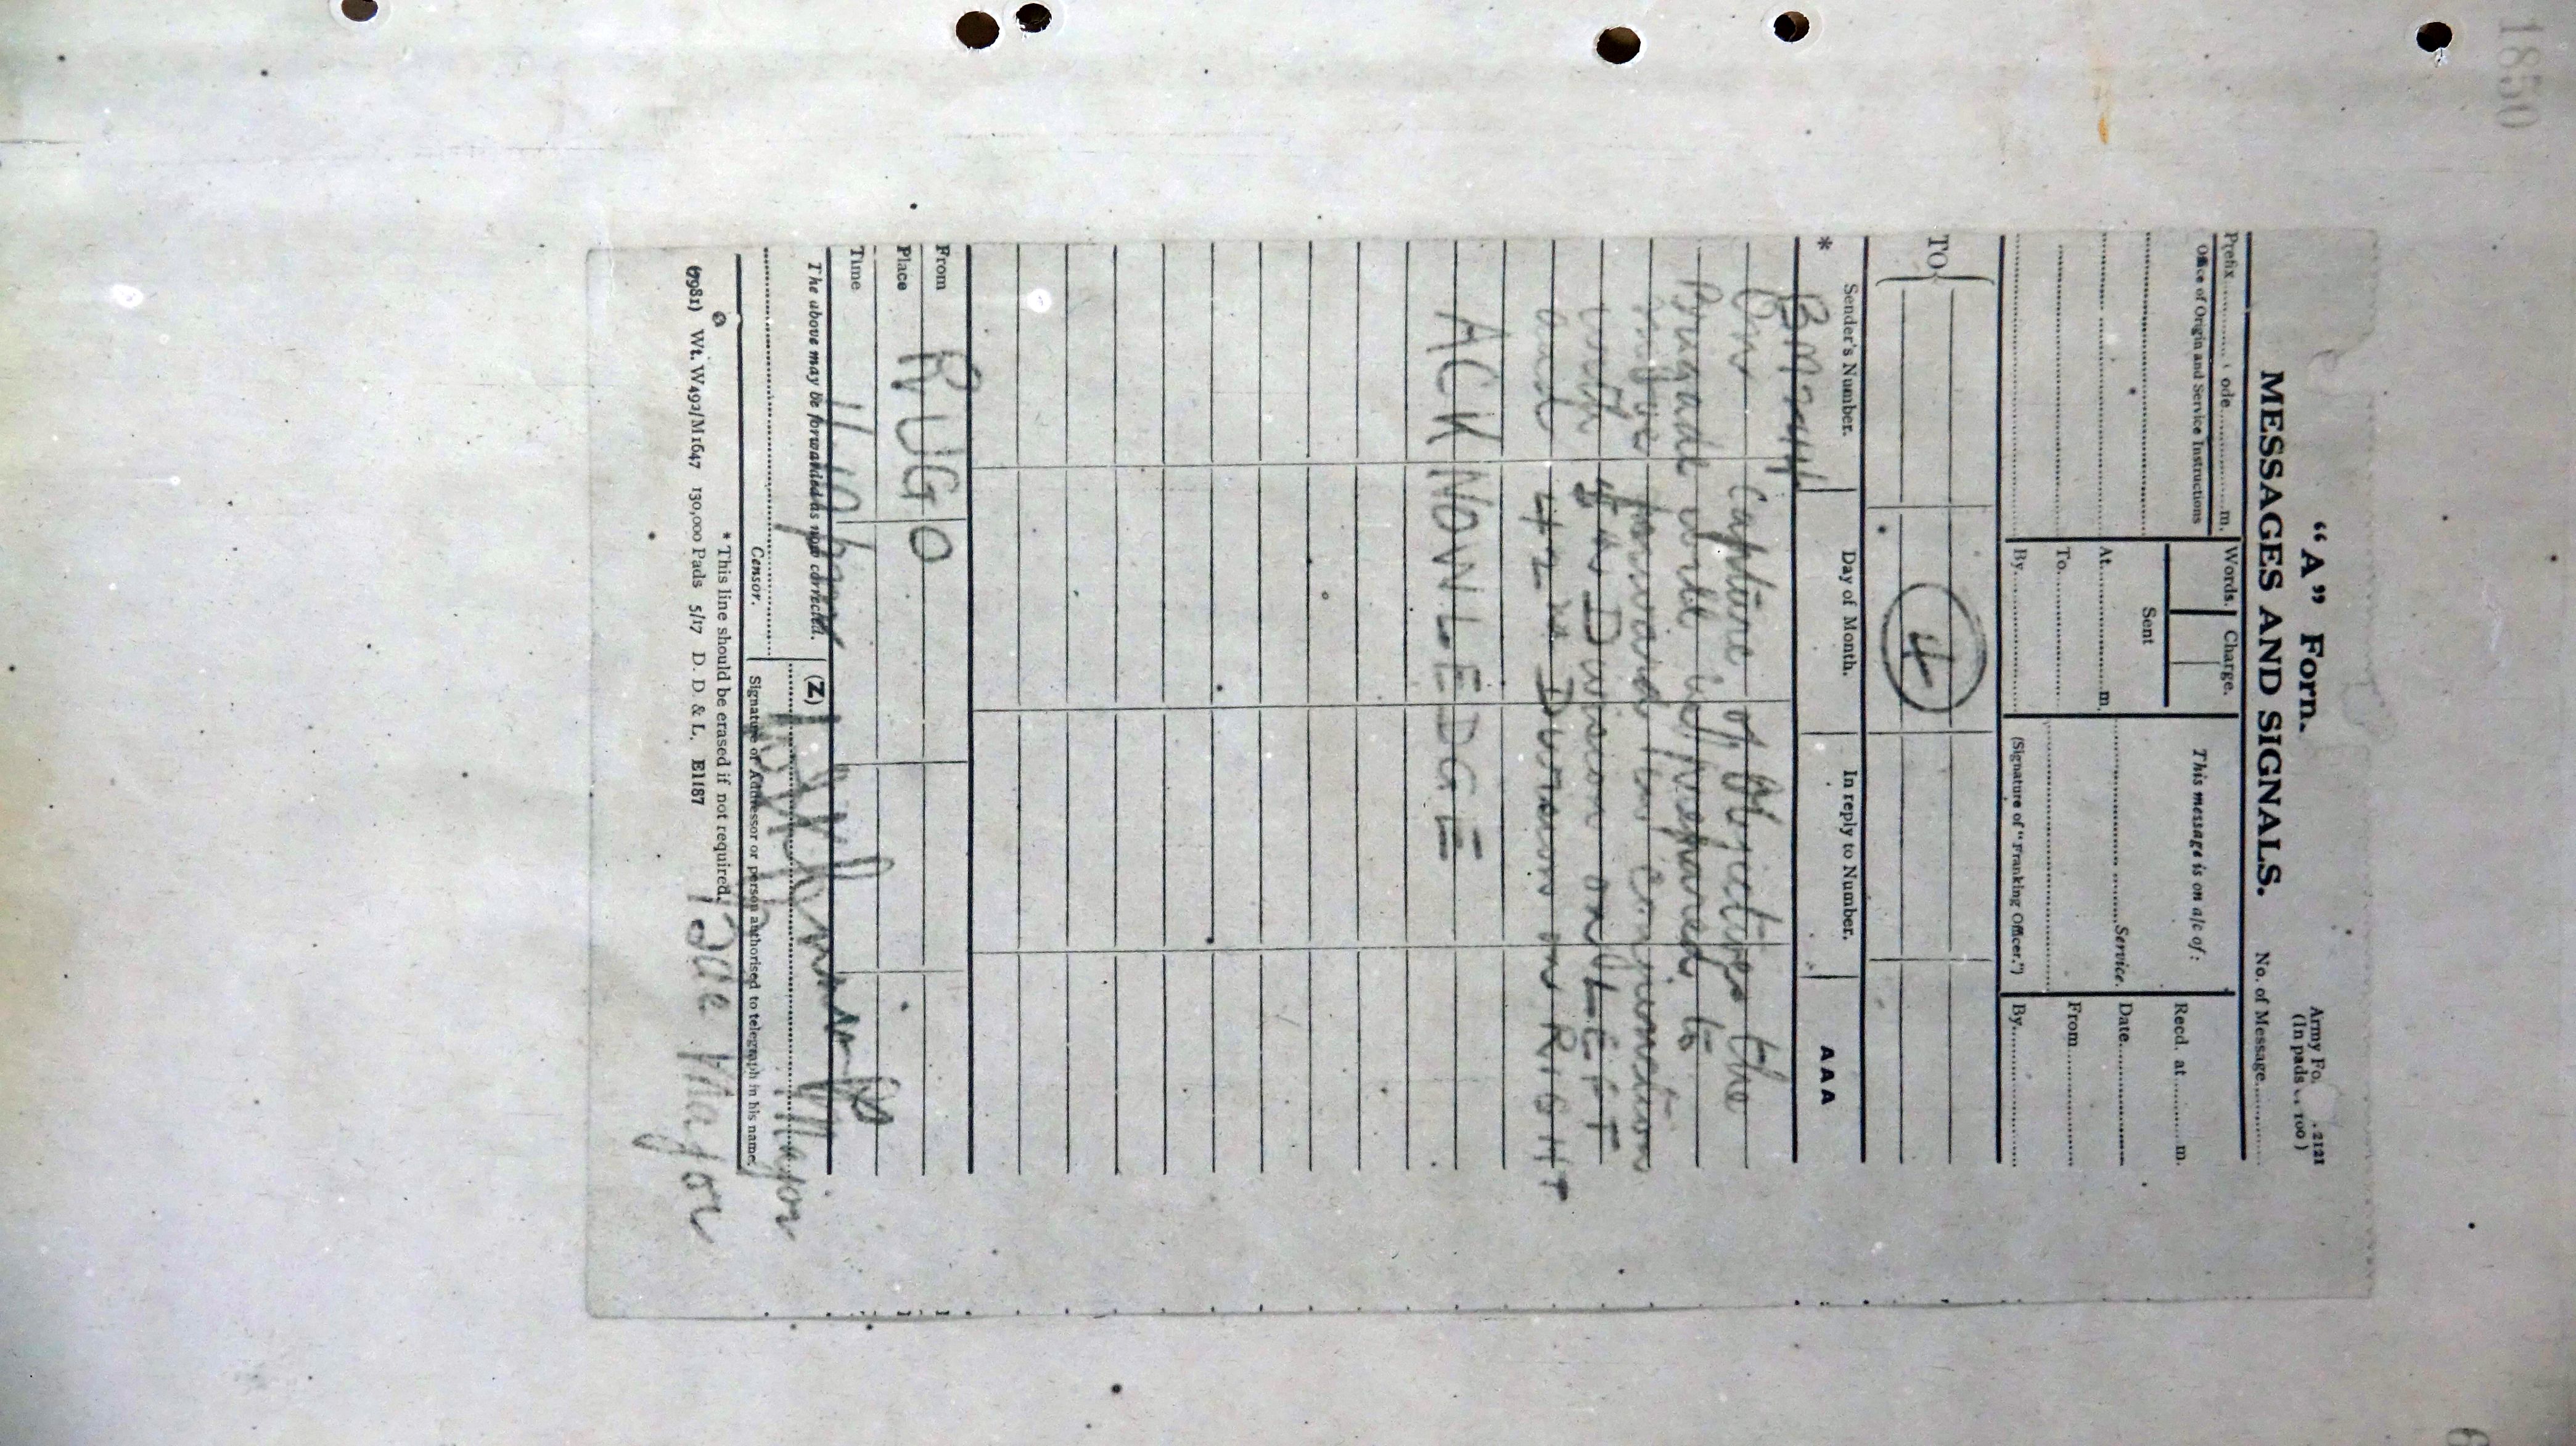 1850
"A" Form.
Army Fo. . 2121
(In pads 100)
MESSAGES AND SIGNALS.
No. of Message
Prefix Code m.
Words. Charge.
This message is on a/c of :
Recd. at m.
Office of Origin and Service Instructions
Sent
Service.
Date
At m.
From
To
By
(Signature of "Franking Officer.")
By
TO
4
Sender's Number.
Day of Month.
In reply to Number.
AAA
*
On capture of objectives the
Brigade will be prepared to
forward in conjunction
with Division on LEFT
and 42nd Division on RIGHT
ACKNOWLEDGE
From RUGO
Place
Time
The above may be forwarded as now corrected.
(Z)
Major
Censor.
Signature of Addressor or person authorised to telegraph in his name.
* This line should be erased if not required.
Bde Major
(7981) Wt. W492/M1647 130,000 Pads 5/17 D. D. & L. E1187